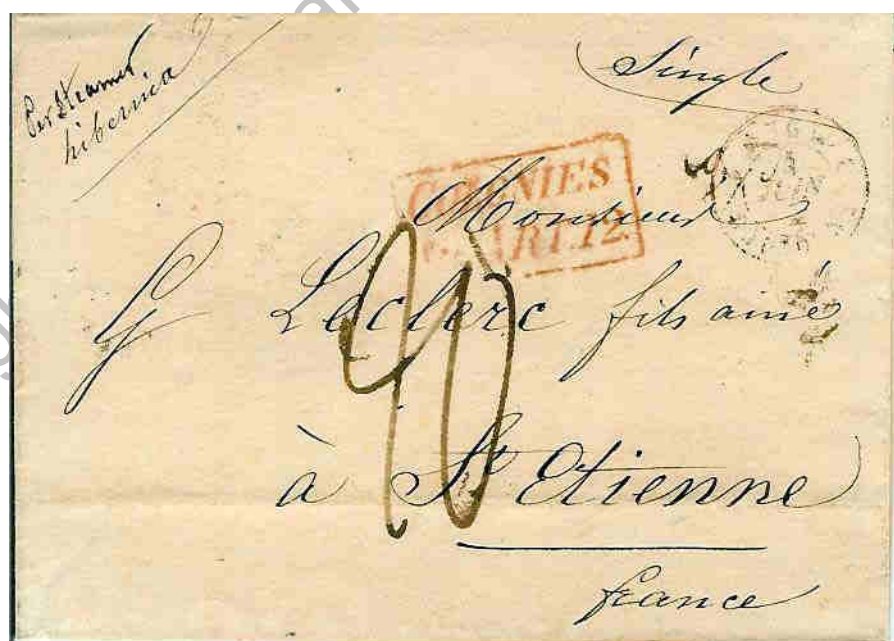 Per Steamer
hibernia
Single
COLONIES
&c. ART. 12.
Monsieur
Leclerc fils ainé
à St Etienne
france